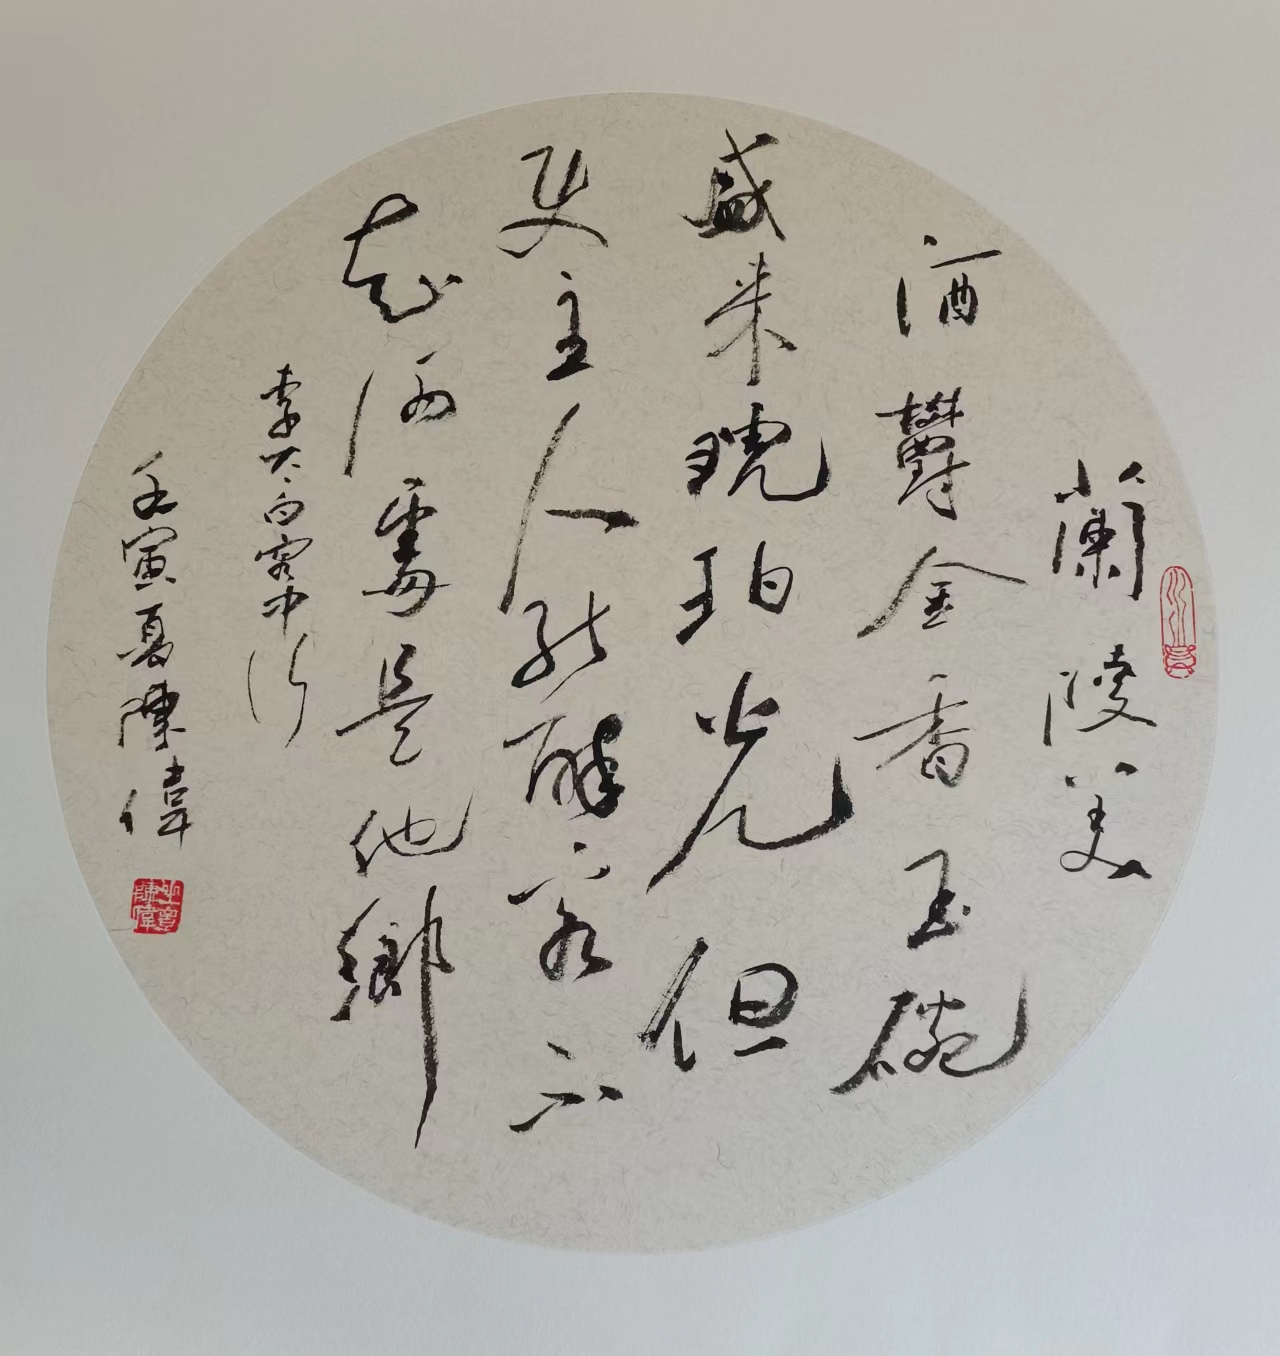 蘭陵美
酒欝金香玉碗
盛来琥珀光但
使主人能醉客不
知何處是他鄉
李太白客中行
壬寅夏陳偉